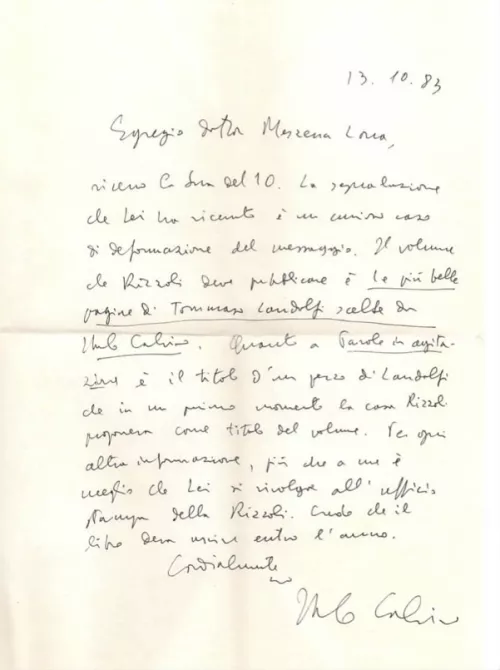 13.10.83
Egregio dottor Meszena Lona,
ricevo la Sua del 10. La segnalazione
che Lei ha ricevuto è un curioso caso
di deformazione del messaggio. Il volume
che Rizzoli deve pubblicare è Le più belle
pagine di Tommaso Landolfi scelte da
Italo Calvino. Quanto a Parole in agita-
zione è il titolo d'un pezzo di Landolfi
che in un primo momento la casa Rizzoli
proponeva come titolo del volume. Per ogni
altra informazione, più che a me è
meglio che Lei si rivolga all'ufficio
stampa della Rizzoli. Credo che il
libro deva uscire entro l'anno.
Cordialmente
Italo Calvino